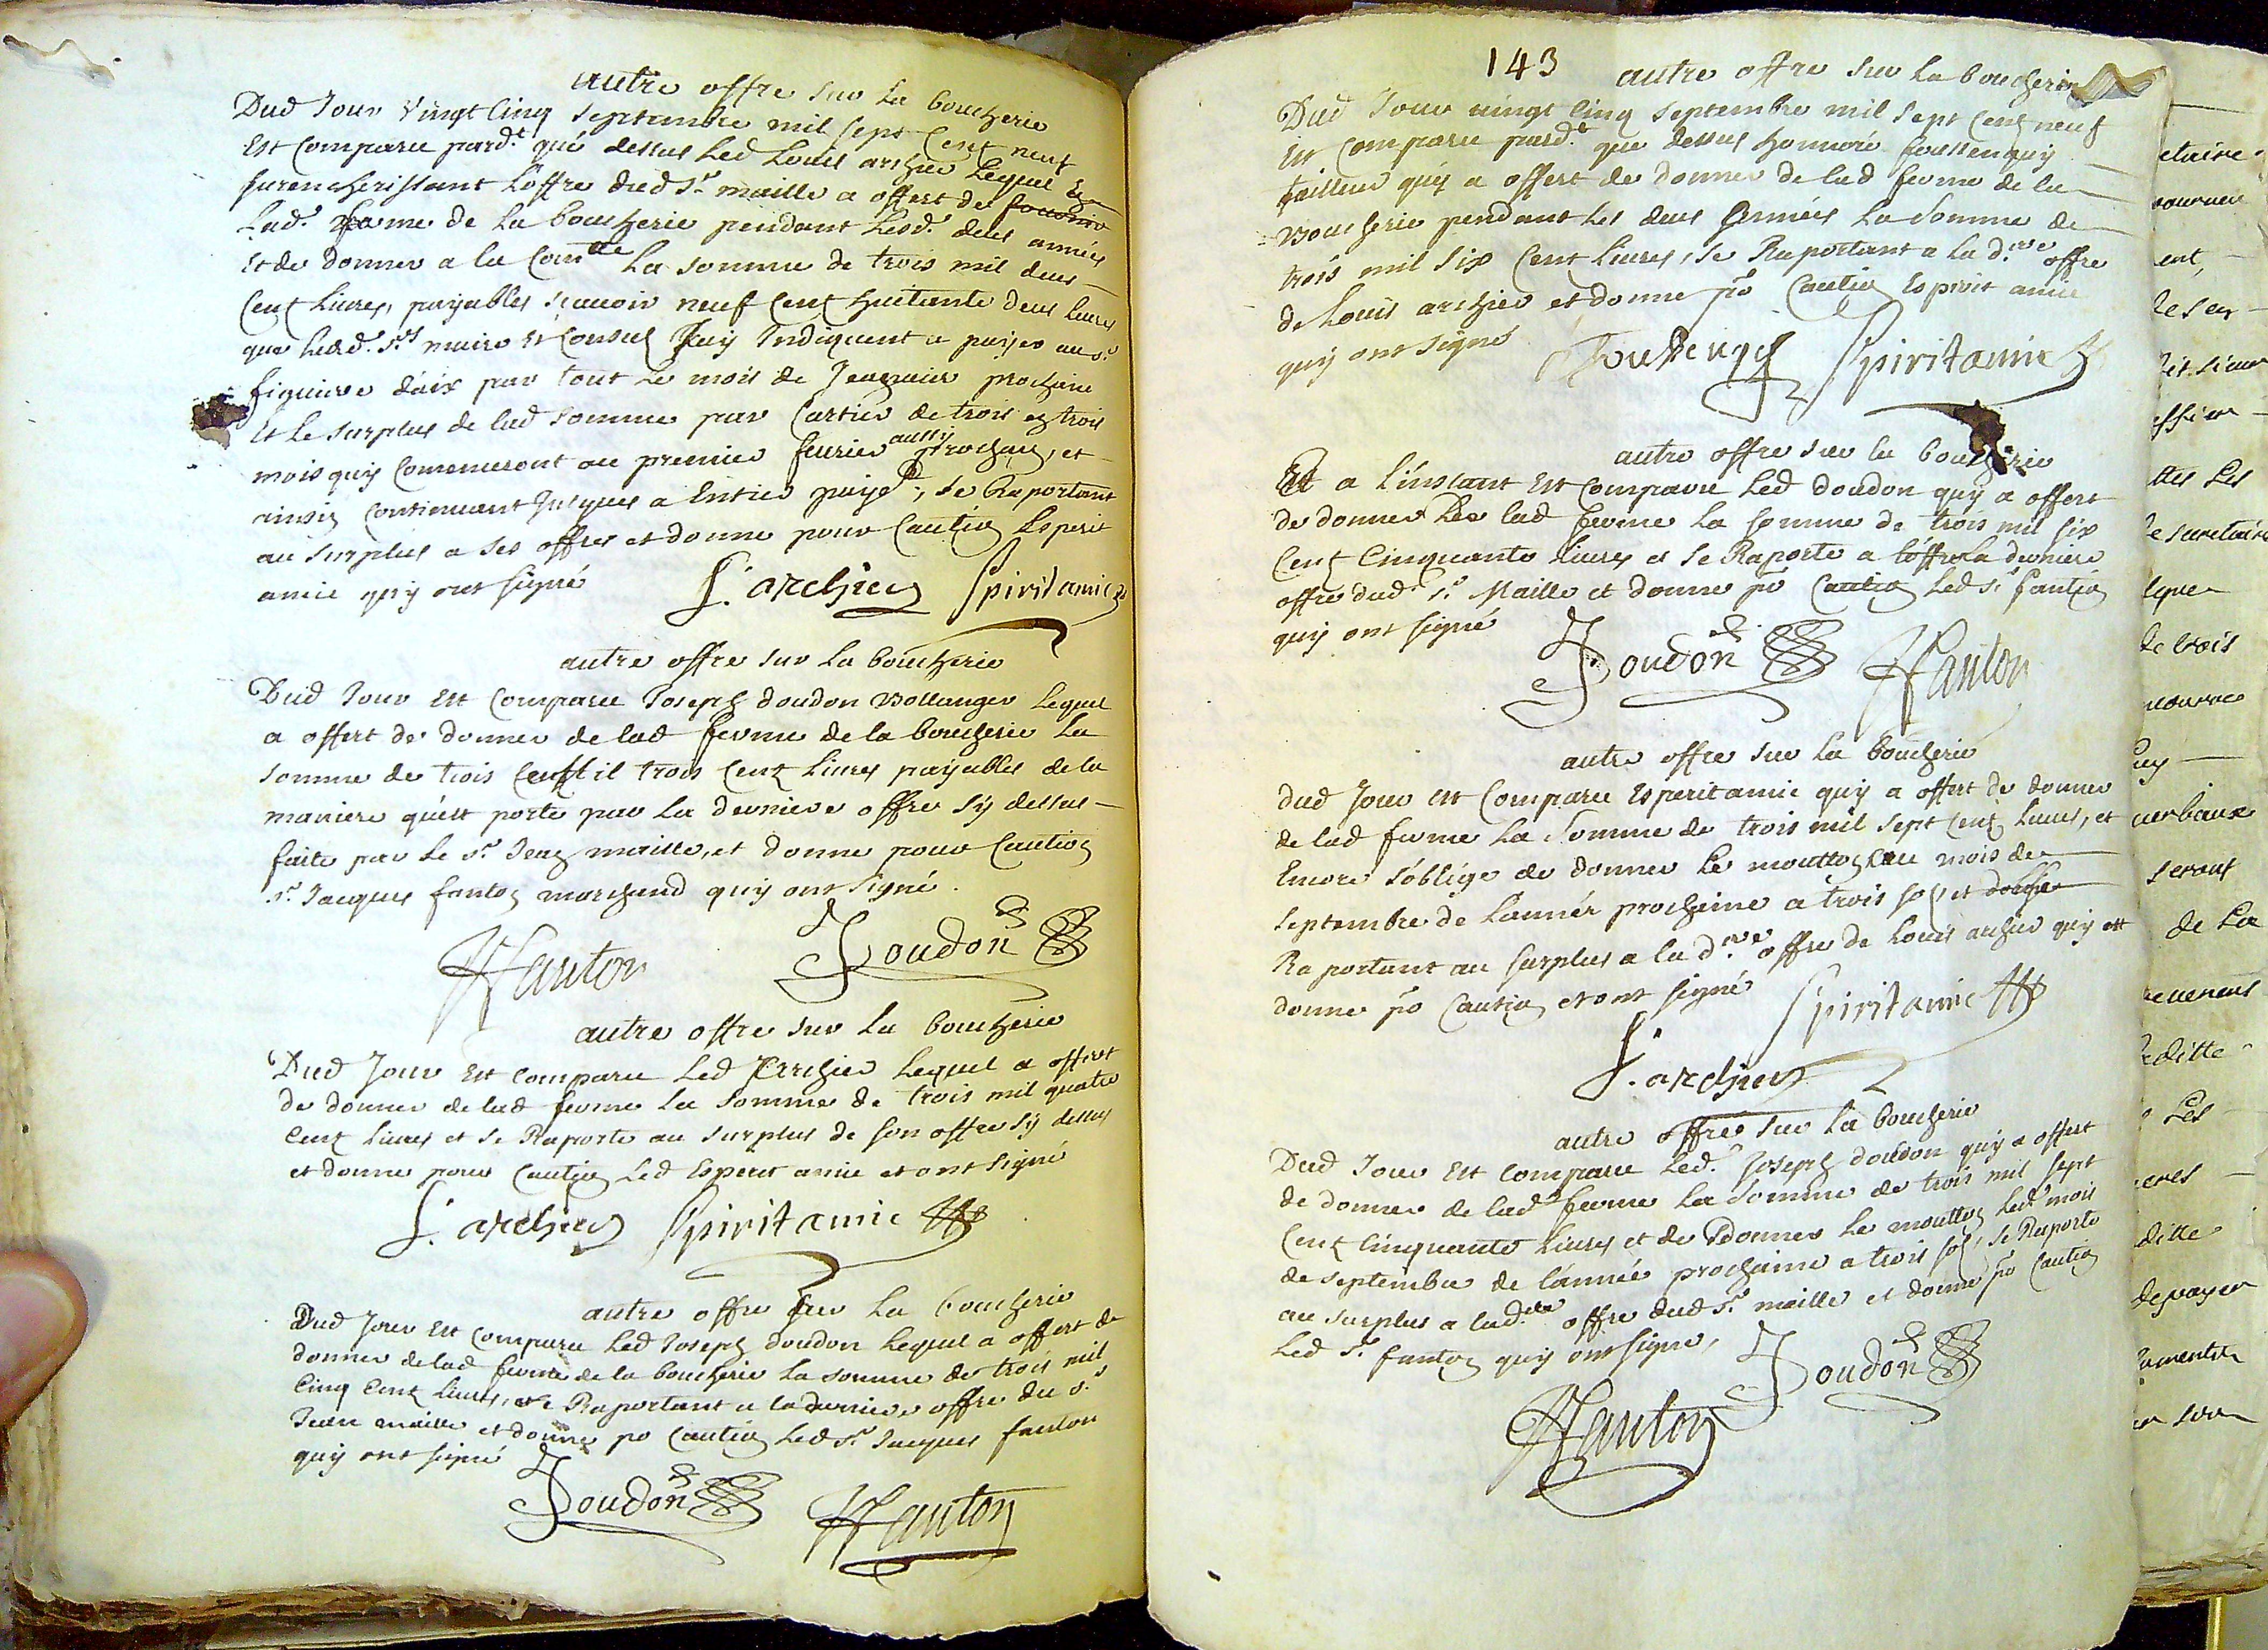 autre offre sur la boucherie
Dud Jour vingt cinq septembre mil sept cent neuf
Est comparu pard.t que dessus led Louis archier lequel En
surencherissant l'offre dud Sr maille a offert de fournir
lad.e ferme de la boucherie pendant lesd. deus années
et de donner a la Com.te la somme de trois mil deus
Cent livres, payables scavoir neuf Cent huitante deus livres
que lesd. Srs maire et Consul luy Indiquent a payer au Sr
figuiere d'aix par tout le mois de Jeanvier prochain
Et le surplus de lad somme par Cartier de trois en trois
mois quy Comenceront au premier feurier aussy prochain, et
ainsin Continuant Jusques a Entier paye.t, se Raportant
au surplus a ses offres et donne pour Caution Esperit
amic quy ont signé
L. archier Spirit amic
autre offre sur la boucherie
Dud Jour est comparu Joseph doudon boullanger lequel
a offert de donner de lad ferme de la boucherie la
somme de trois mil trois Cent livres payables de la
maniere qu'est porté par la derniere offre sy dessus
faite par le Sr Jean maille, et donne pour Caution
Sr Jacques fanton marchand quy ont signé.
Fanton Joudon
autre offre sur la boucherie
Dud Jour est comparu led Archier lequel a offert
de donner de lad ferme la somme de trois mil quatre
Cent livres et se Raporte au surplus de son offre sy dessus
et donne pour Caution led Esperit amic et ont signé
L. archier Spirit amic
autre offre sur la boucherie
Dud Jour est comparu led Joseph doudon lequel a offert de
donner de lad ferme de la boucherie la somme de trois mil
Cinq Cent livres, se Raportant a la derniere offre du Sr
Jean maille et donne po Caution led Sr Jacques fanton
quy ont signé
Joudon Fanton
143
autre offre sur la boucherie
Dud Jour vingt cinq septembre mil sept Cent neuf
est comparu pard.t que dessus honnoré foussenquy
tailleur quy a offert de donner de lad ferme de la
boucherie pendant les deus années la somme de
trois mil six Cent livres, se Raportant a la d.re offre
de Louis archier et donne po Caution Esprit amic
quy ont signé
foussenqy Spirit amic
autre offre sur la boucherie
Et a l'instant est comparu led doudon quy a offert
de donner de lad ferme la somme de trois mil six
Cent Cinquante livres et se Raporte a l'offre la derniere
offre dud Sr Maille et donne po Caution led Sr fanton
quy ont signé
Joudon Fanton
autre offre sur la boucherie
dud Jour est Comparu Esperit amic quy a offert de donner
de lad ferme la somme de trois mil sept Cent livres, et
Encore s'oblige de donner le mouton au mois de
septembre de l'année prochaine a trois sols, et
Raportant au surplus a la d.re offre de Louis archier quy est
donné po Caution et ont signé
Spirit amic
L. archier
autre offre sur la boucherie
Dud Jour est comparu led. Joseph doudon quy a offert
de donner de lad ferme la somme de trois mil sept
Cent Cinquante livres et de donner le mouton led mois
de septembre de l'année prochaine a trois sols, se Raporte
au surplus a lad.re offre dud Sr maille et donne po Caution
led Sr fanton quy ont signé,
Joudon
Fanton
ent,
de trois
seront
de La
ditte
depayer